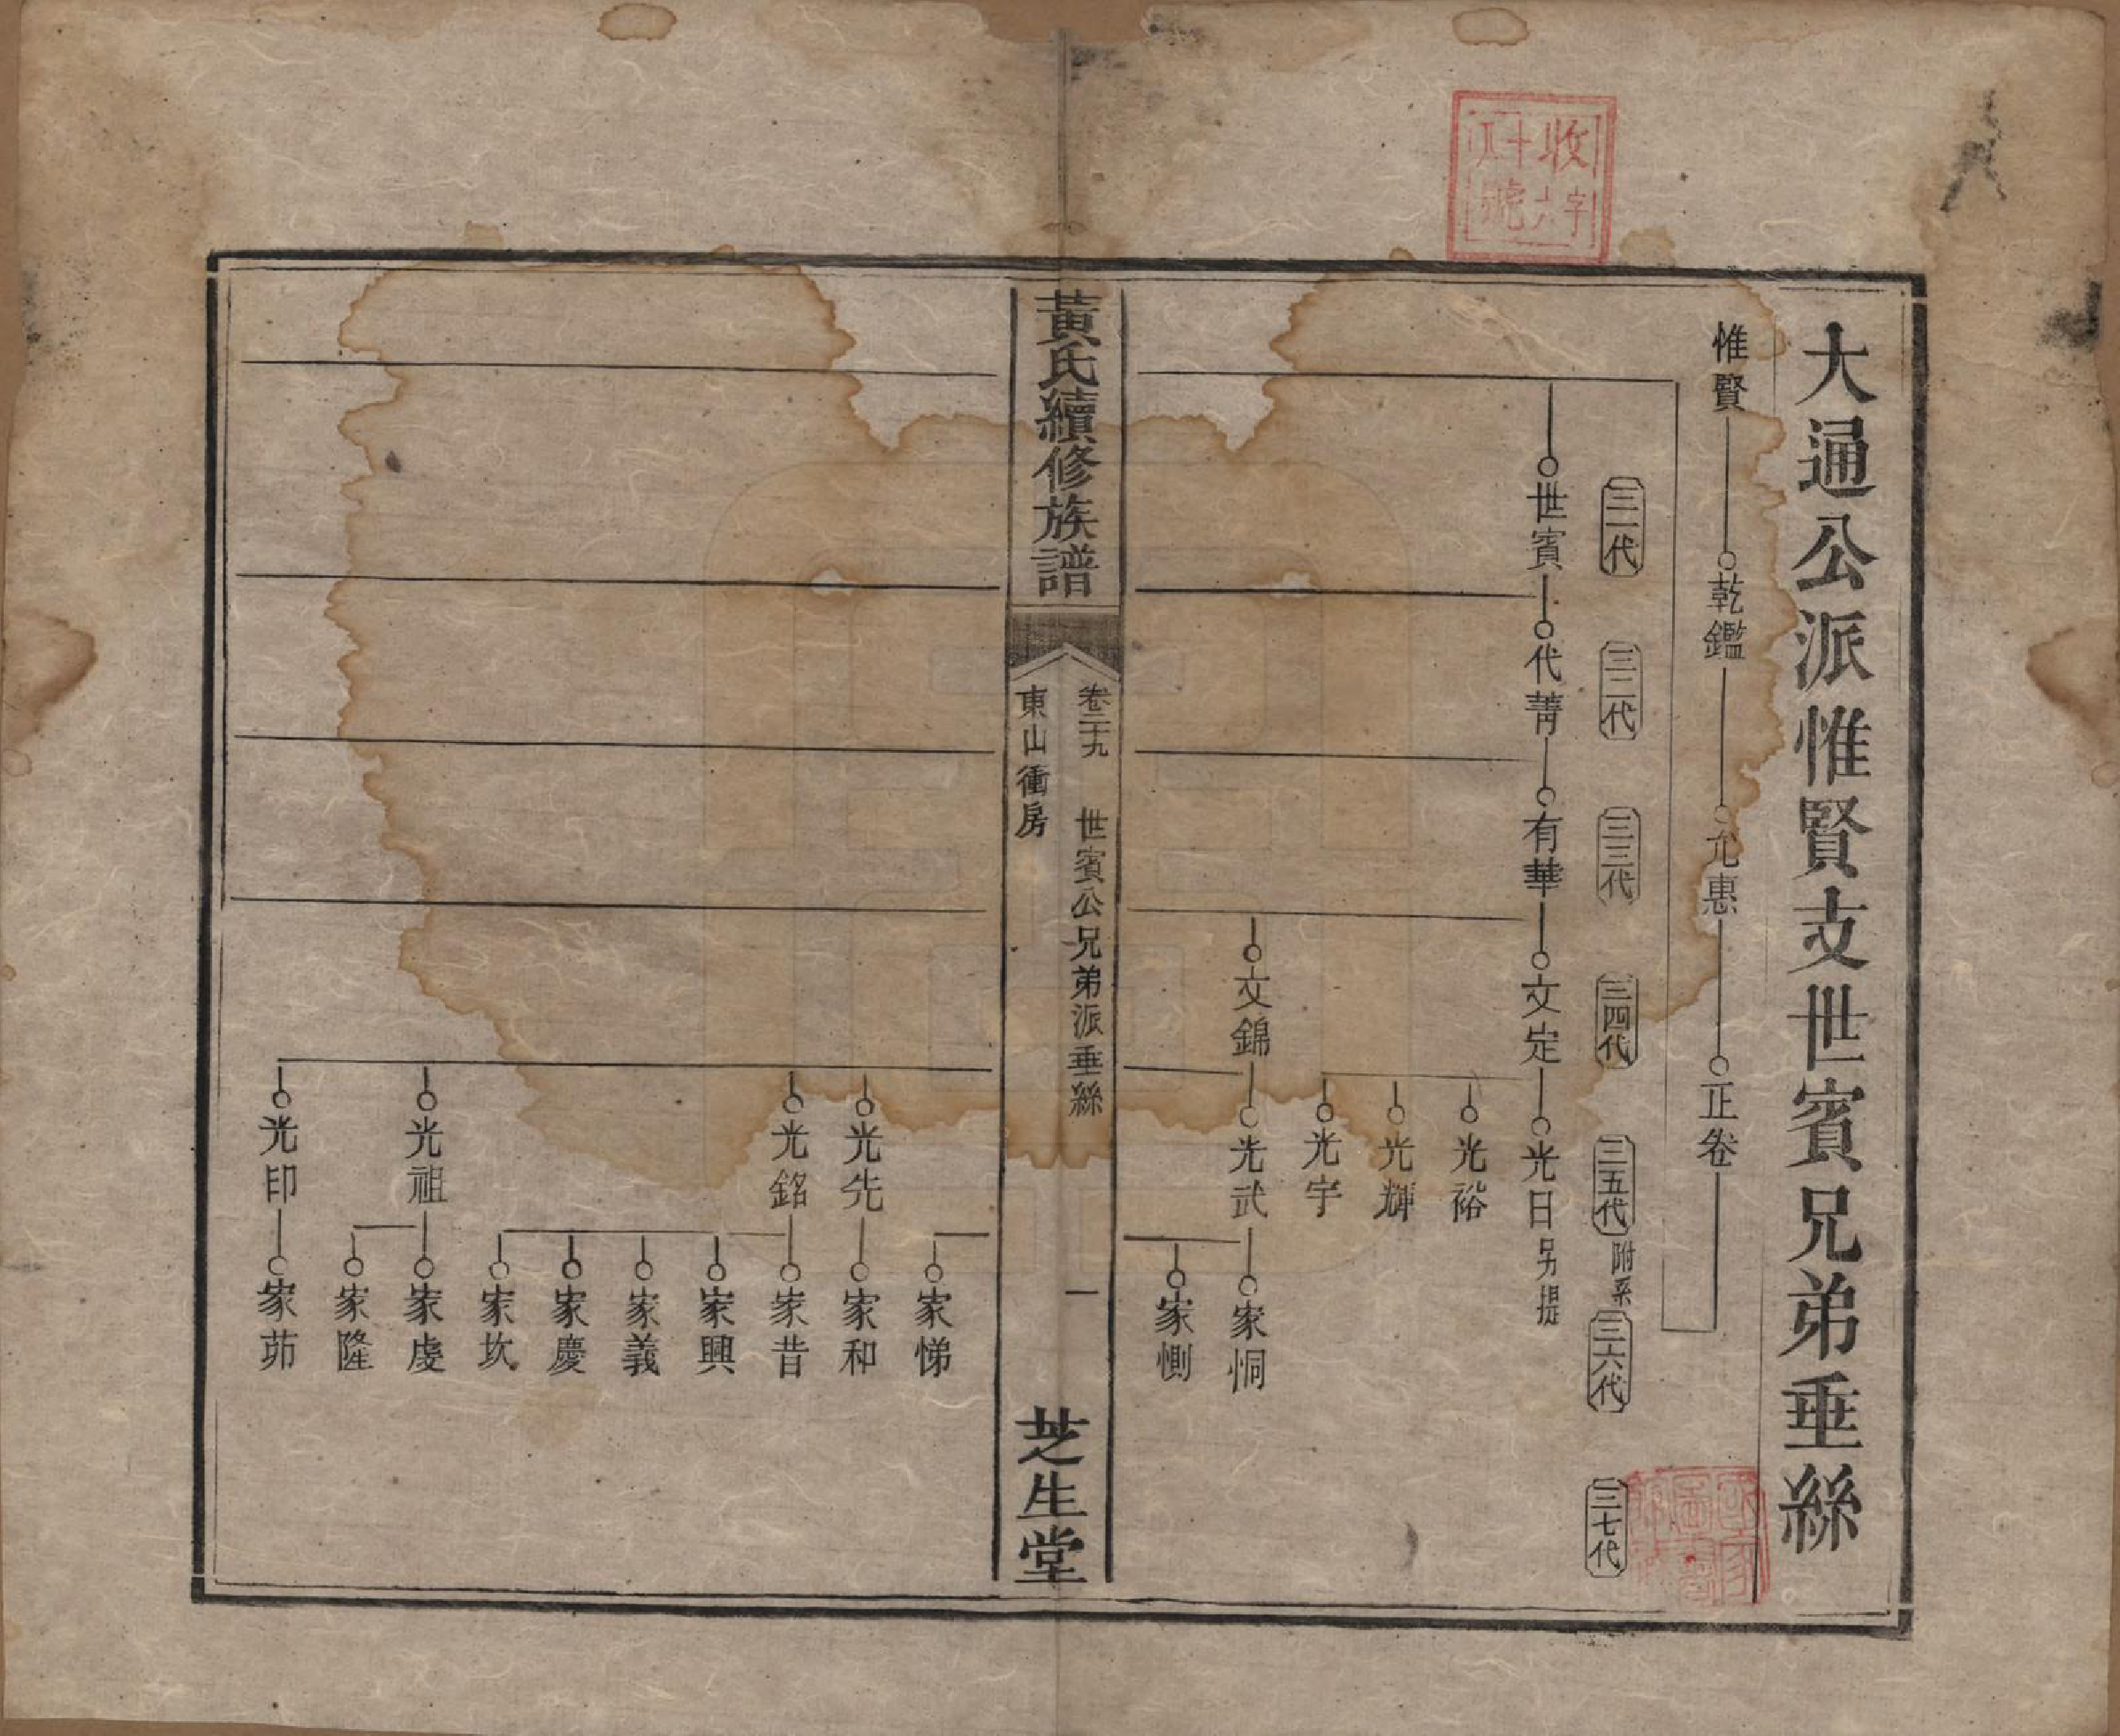 大通公派惟賢支世賓兄弟垂絲
惟賢 乾鑑 允惠 正卷
三一代 三二代 三三代 三四代 三五代 附系 三六代 三七代
世賓 代菁 有華 文定 光日 另提
光裕
光輝
光宇
文錦 光武 家恫
家惻
黃氏續修族譜
卷二十九 世賓公兄弟派垂絲 一
東山衝房
芝生堂
家悌
光先 家和
光銘 家昔
家興
家義
家慶
家坎
光祖 家虔
家隆
光印 家茆
收字
十六
號